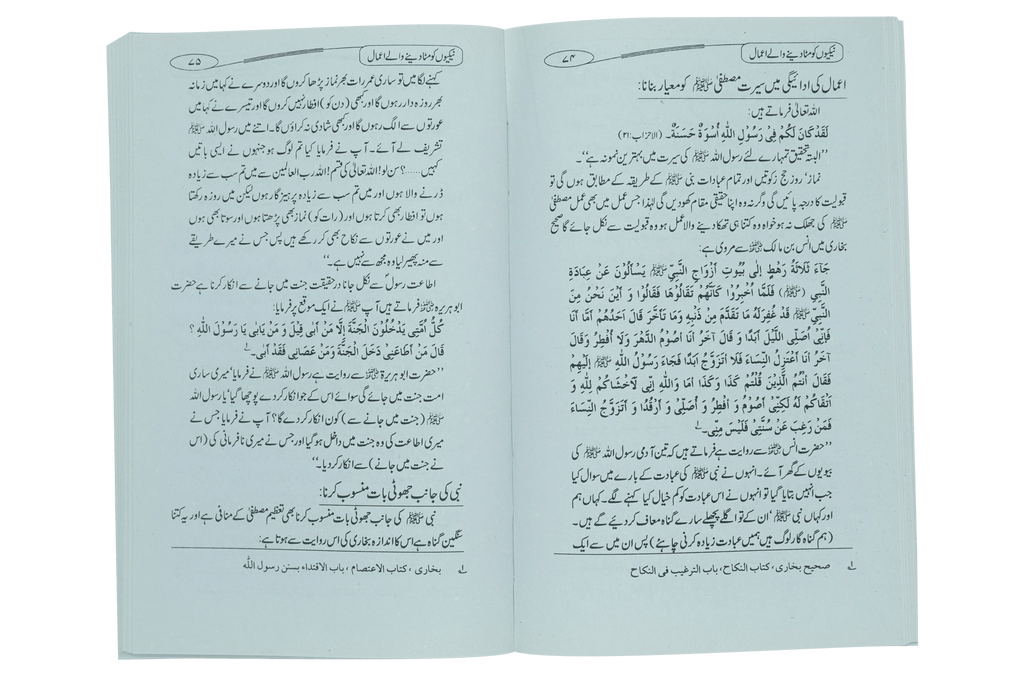 نیکیوں کو مٹا دینے والے اعمال ۷۴
اعمال کی ادائیگی میں سیرت مصطفیٰ ﷺ کو معیار بنانا:
اللہ تعالیٰ فرماتے ہیں:
لَقَدْ كَانَ لَكُمْ فِيْ رَسُوْلِ اللّٰهِ أُسْوَةٌ حَسَنَةٌ۔ (الاحزاب:۲۱)
’’البتہ تحقیق تمہارے لئے رسول اللہ ﷺ کی سیرت میں بہترین نمونہ ہے‘‘۔
نماز‘ روزے‘ حج‘ زکوتیں اور تمام عبادات نبی ﷺ کے طریقہ کے مطابق ہوں گی تو
قبولیت کا درجہ پائیں گی وگرنہ وہ اپنا حقیقی مقام کھو دیں گی لہٰذا جس عمل میں بھی عمل مصطفیٰ
ﷺ کی جھلک نہ ہو خواہ وہ کتنا ہی تھکا دینے والا عمل ہو وہ قبولیت سے نکل جائے گا صحیح
بخاری میں انس بن مالک ؓ سے مروی ہے:
جَاءَ ثَلَاثَةُ رَهْطٍ إِلٰى بُيُوْتِ أَزْوَاجِ النَّبِيِّ ﷺ يَسْأَلُوْنَ عَنْ عِبَادَةِ
النَّبِيِّ (ﷺ) فَلَمَّا اُخْبِرُوْا كَأَنَّهُمْ تَقَالُّوْهَا فَقَالُوْا وَ أَيْنَ نَحْنُ مِنَ
النَّبِيِّ ﷺ قَدْ غُفِرَلَهُ مَا تَقَدَّمَ مِنْ ذَنْبِهٖ وَمَا تَأَخَّرَ قَالَ اَحَدُهُمْ اَمَّا أَنَا
فَإِنِّيْ أُصَلِّي اللَّيْلَ أَبَدًا وَ قَالَ آخَرُ أَنَا أَصُوْمُ الدَّهْرَ وَلَا أُفْطِرُ وَقَالَ
آخَرُ أَنَا أَعْتَزِلُ النِّسَاءَ فَلَا أَتَزَوَّجُ أَبَدًا فَجَاءَ رَسُوْلُ اللّٰهِ ﷺ إِلَيْهِمْ
فَقَالَ أَنْتُمُ الَّذِيْنَ قُلْتُمْ كَذَا وَكَذَا أَمَا وَاللّٰهِ إِنِّيْ لَأَخْشَاكُمْ لِلّٰهِ وَ
أَتْقَاكُمْ لَهُ لَكِنِّيْ أَصُوْمُ وَ أُفْطِرُ وَ أُصَلِّيْ وَ أَرْقُدُ وَ أَتَزَوَّجُ النِّسَاءَ
فَمَنْ رَغِبَ عَنْ سُنَّتِيْ فَلَيْسَ مِنِّيْ۔ ۱
’’حضرت انس ؓ سے روایت ہے فرماتے ہیں کہ تین آدمی رسول اللہ ﷺ کی
بیویوں کے گھر آئے۔ انہوں نے نبی ﷺ کی عبادت کے بارے میں سوال کیا
جب انہیں بتایا گیا تو انہوں نے اس عبادت کو کم خیال کیا کہنے لگے۔ کہاں ہم
اور کہاں نبی ﷺ ‘ان کے تو اگلے پچھلے سارے گناہ معاف کر دیئے گے ہیں۔
(ہم گناہ گار لوگ ہیں ہمیں عبادت زیادہ کرنی چاہئے) پس ان میں سے ایک
۱ صحیح بخاری، کتاب النکاح، باب الترغیب فی النکاح
نیکیوں کو مٹا دینے والے اعمال ۷۵
کہنے لگا میں تو ساری عمر رات بھر نماز پڑھا کروں گا اور دوسرے نے کہا میں زمانہ
بھر روزہ دار رہوں گا اور کبھی (دن کو) افطار نہیں کروں گا اور تیسرے نے کہا میں
عورتوں سے الگ رہوں گا اور کبھی شادی نہ کراؤں گا۔ اتنے میں رسول اللہ ﷺ
تشریف لے آئے۔ آپ نے فرمایا کیا تم لوگ ہو جنہوں نے ایسی باتیں
کہیں.....؟ سن لو! اللہ تعالیٰ کی قسم! اللہ رب العالمین سے میں تم سب سے زیادہ
ڈرنے والا ہوں اور میں تم سب سے زیادہ پرہیزگار ہوں لیکن میں روزہ رکھتا
ہوں تو افطار بھی کرتا ہوں اور (رات کو) نماز بھی پڑھتا ہوں اور سوتا بھی ہوں
اور میں نے عورتوں سے نکاح بھی کر رکھے ہیں پس جس نے میرے طریقے
سے منہ پھیر لیا وہ مجھ سے نہیں ہے۔‘‘
اطاعت رسولؐ سے نکل جانا درحقیقت جنت میں جانے سے انکار کرنا ہے حضرت
ابو ہریرہ ؓ فرماتے ہیں آپ ﷺ نے ایک موقع پر فرمایا:
كُلُّ أُمَّتِيْ يَدْخُلُوْنَ الْجَنَّةَ إِلَّا مَنْ أَبٰى قِيْلَ وَ مَنْ يَابٰى يَا رَسُوْلَ اللّٰهِ ؟
قَالَ مَنْ اَطَاعَنِيْ دَخَلَ الْجَنَّةَ وَمَنْ عَصَانِيْ فَقَدْ أَبٰى۔ ۱
’’حضرت ابو ہریرۃ ؓ سے روایت ہے رسول اللہ ﷺ نے فرمایا‘ میری ساری
امت جنت میں جائے گی سوائے اس کے جو انکار کر دے پوچھا گیا‘ یا رسول اللہ
ﷺ (جنت میں جانے سے) کون انکار کر دے گا؟ آپ نے فرمایا جس نے
میری اطاعت کی وہ جنت میں داخل ہو گیا اور جس نے میری نافرمانی کی (اس
نے جنت میں جانے) سے انکار کر دیا۔‘‘
نبی کی جانب جھوٹی بات منسوب کرنا:
نبی ﷺ کی جانب جھوٹی بات منسوب کرنا بھی تعظیم مصطفیٰ کے منافی ہے اور یہ کتنا
سنگین گناہ ہے اس کا اندازہ بخاری کی اس روایت سے ہوتا ہے:
۱ بخاری ، کتاب الاعتصام ، باب الاقتداء بسنن رسول اللّٰہ